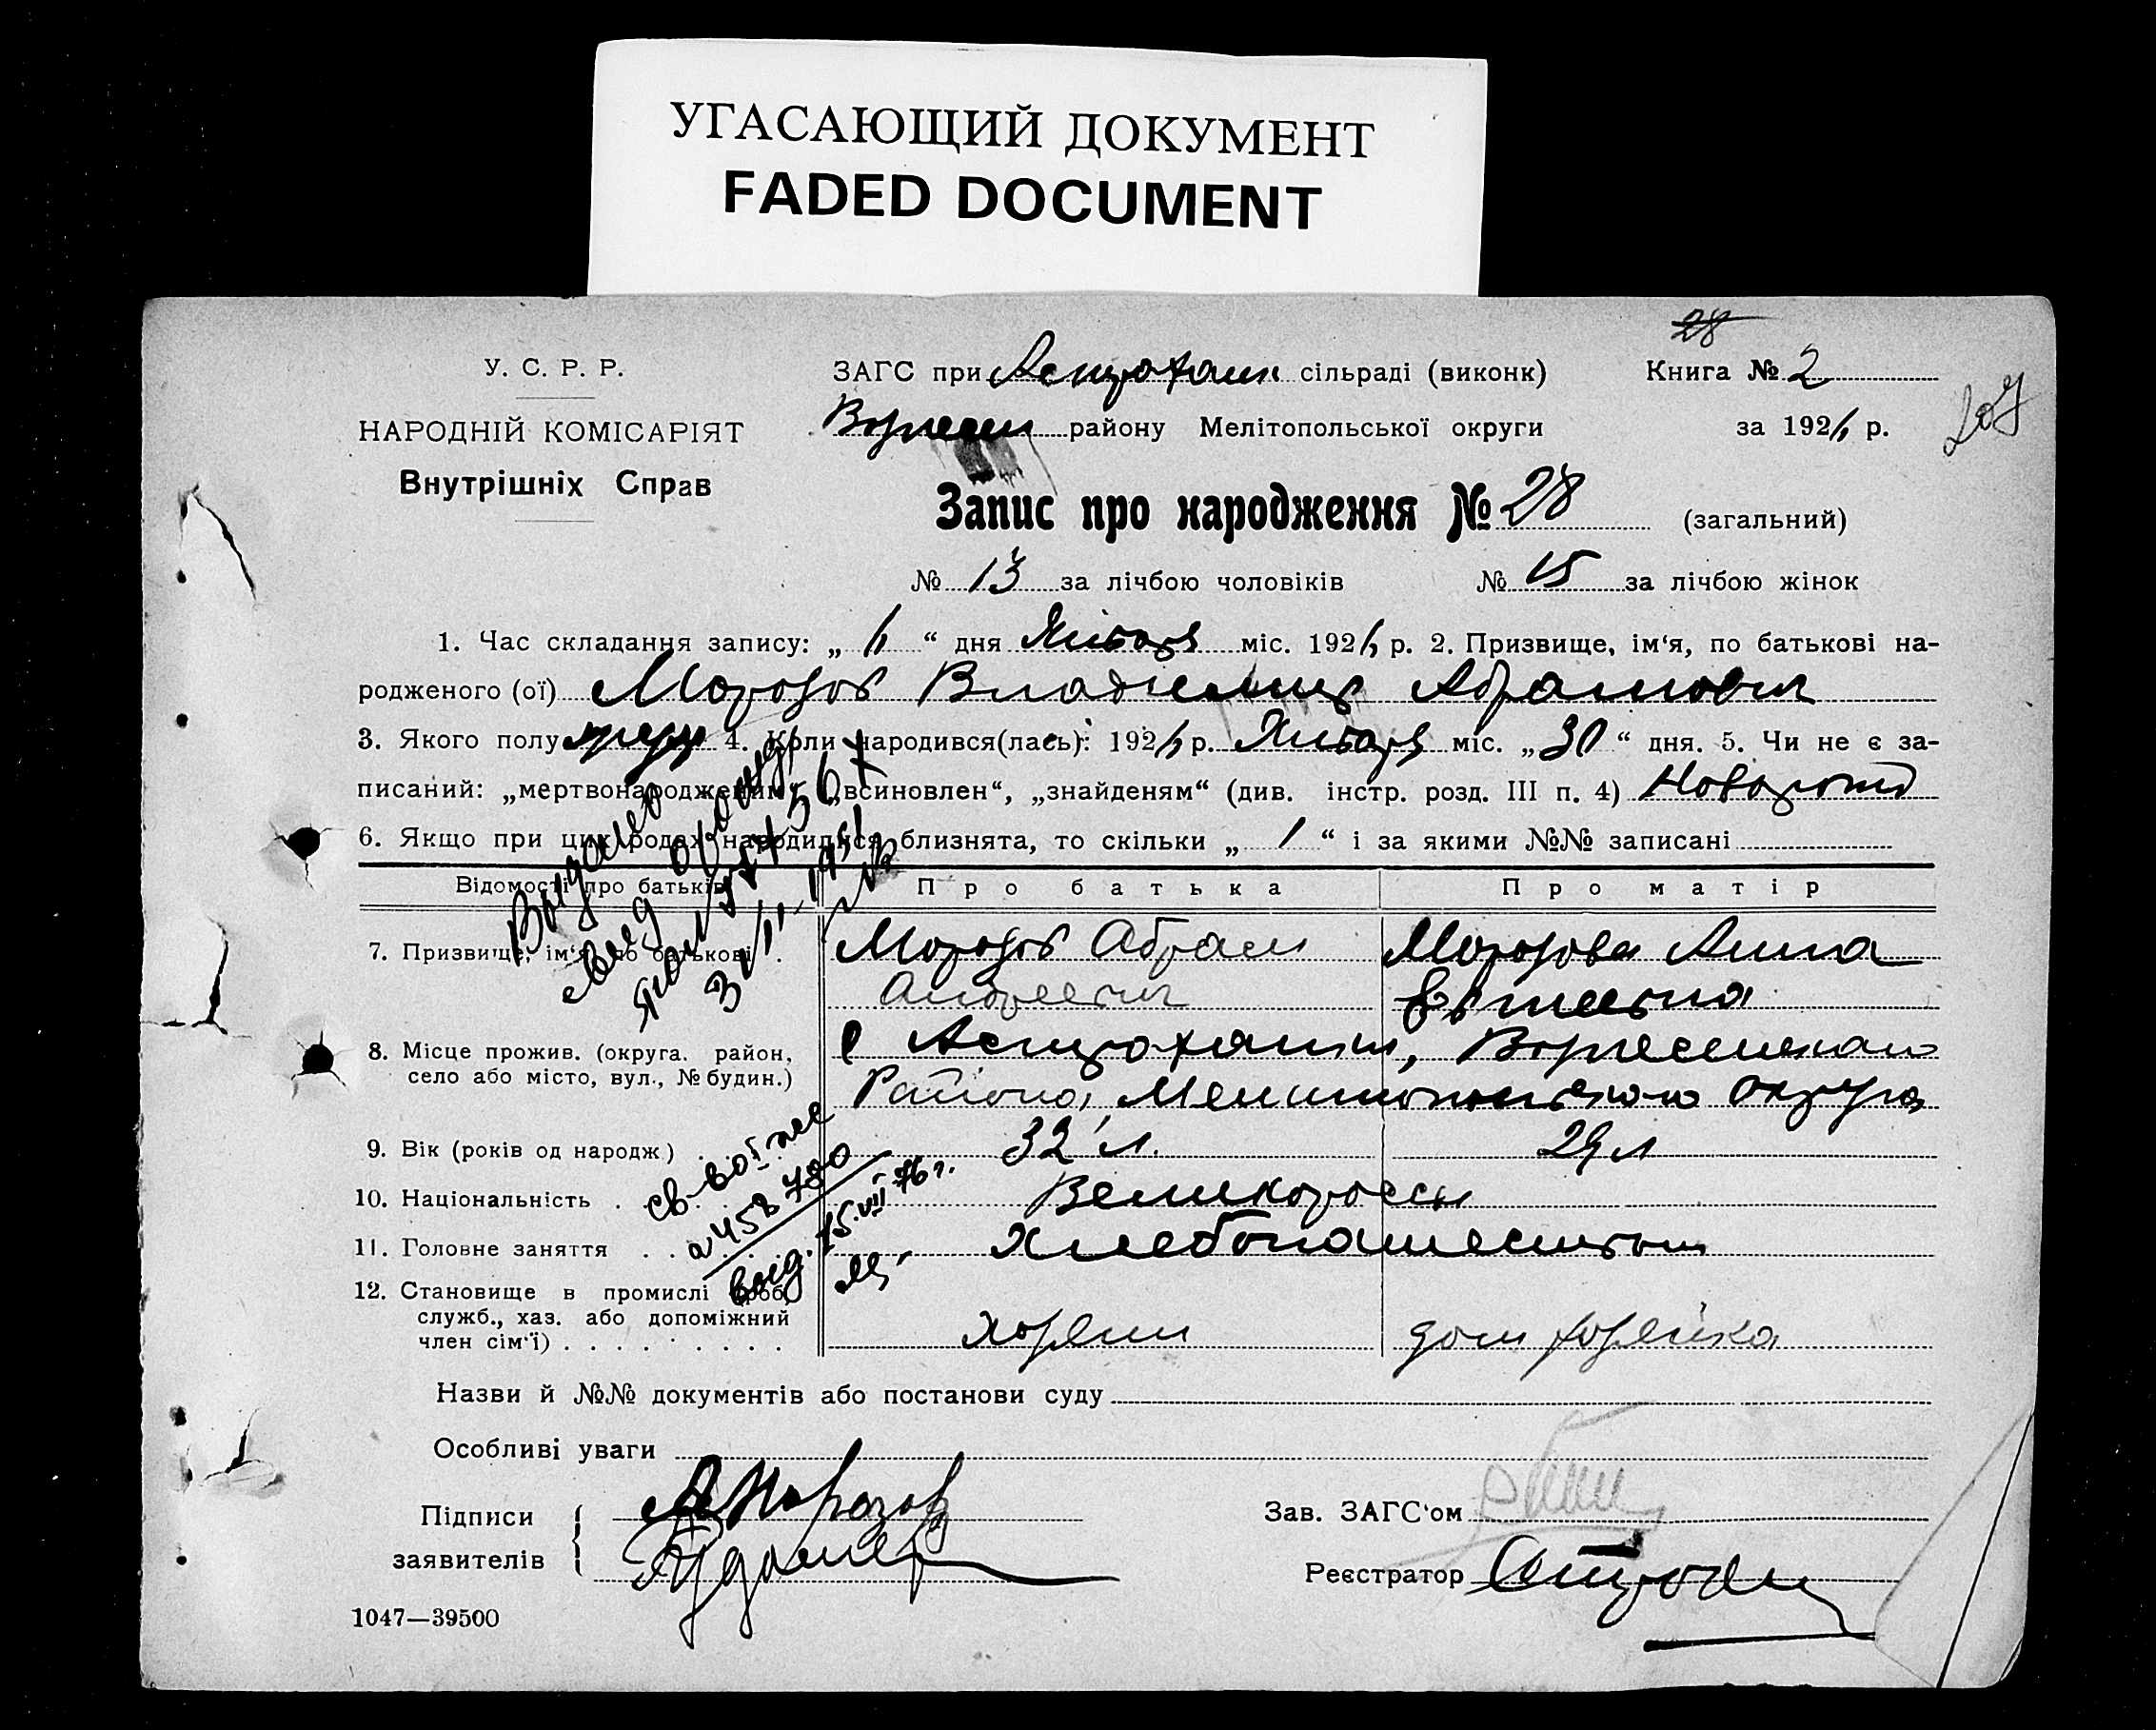 УГАСАЮЩИЙ ДОКУМЕНТ
FADED DOCUMENT
28
У. С. Р. Р.
ЗАГС при Астрахан сільраді (виконк)
Книга № 2
НАРОДНІЙ КОМІСАРІЯТ
району Мелітопольської округи
за 192 р.
Внутрішніх Справ
Запис про народження № 28 (загальний)
№ 13 за лічбою чоловіків № 15 за лічбою жінок
1. Час складання запису: „ “ дня Января міс. 192 р. 2. Призвище, ім‘я, по батькові на-
родженого (ої) Морозов Владимир Абрамович
3. Якого полу 4. Коли народився(лась): 192 р. Января міс. „30“ дня. 5. Чи не є за-
писаний: „мертвонародженим“, „всиновлен“, „знайденям“ (див. інстр. розд. III п. 4)
6. Якщо при цих родах народилися близнята, то скільки „1“ і за якими №№ записані
Відомості про батьків Про батька Про матір
7. Призвище, ім‘я, по батькові . Морозов Абрам Морозова Анна
Андреевич
Выдано
8. Місце прожив. (округа. район, с Астраханки, Вознесенскаго
село або місто, вул., № будин.) Района, Мелитопольского округа
9. Вік (років од народж) 32 л. 29 л
10. Національність Великороссы
11. Головне заняття Хлебопашеством
св-во
458780
выд. 15.VIII-76 г.
12. Становище в промислі (роб,
служб., хаз. або допоміжний
член сім‘ї) хозяин дом хозяйка
Назви й №№ документів або постанови суду
Особливі уваги
Підписи АМорозов
заявителів
Зав. ЗАГС‘ом
Реєстратор
1047—39500